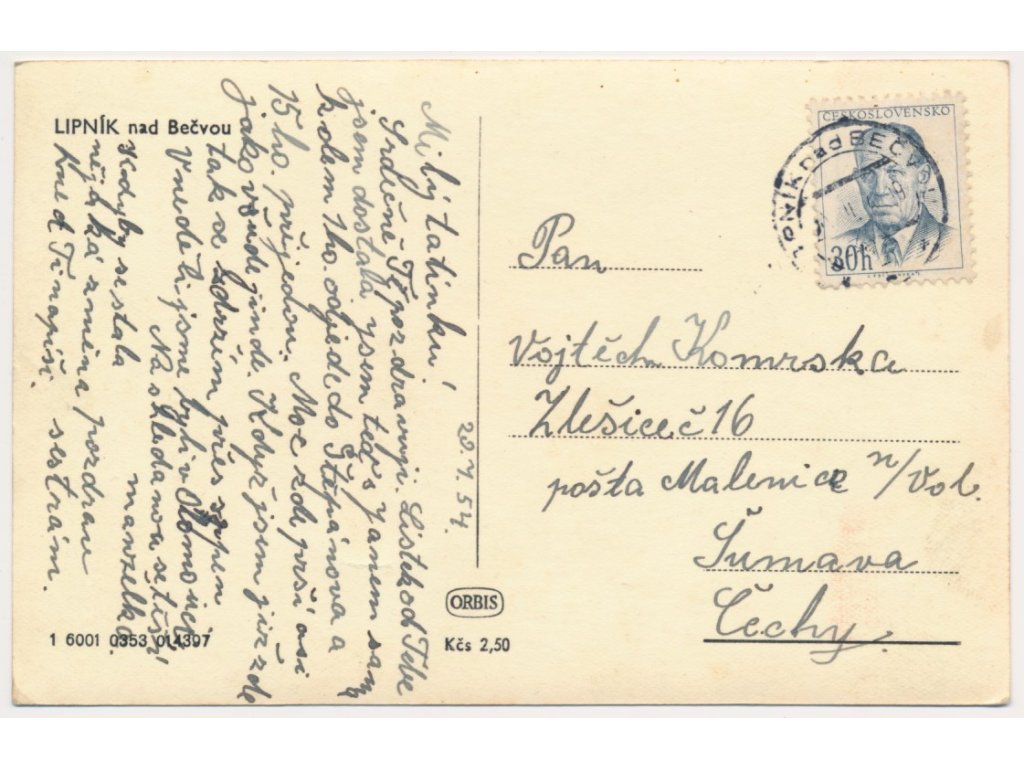 LIPNÍK nad Bečvou
Milý tatínku!
20.7.54.
Srdečně Tě pozdravuji. Lístek od Tebe
jsem dostala. Jsem teď s Janem sam
kolem 1ho. odjede do Štěpánova a
15ho. přijedou. Moc zde prší asi
jako všude jinde. Když jsem již zde
tak se zdržím přes srpen
V neděli jsme byli v Olomouci.
Na shledanou se těší
manželka.
Kdyby se stala
nějaká změna pozdrav
hned Ti napíši. sestrám.
1 6001 0353 014397
ORBIS
Kčs 2,50
ČESKOSLOVENSKO
30h
LIPNÍK nad BEČVOU
Pan
Vojtěch Komrska
Zlešice č 16
pošta Malenice n/Vol.
Šumava
Čechy.